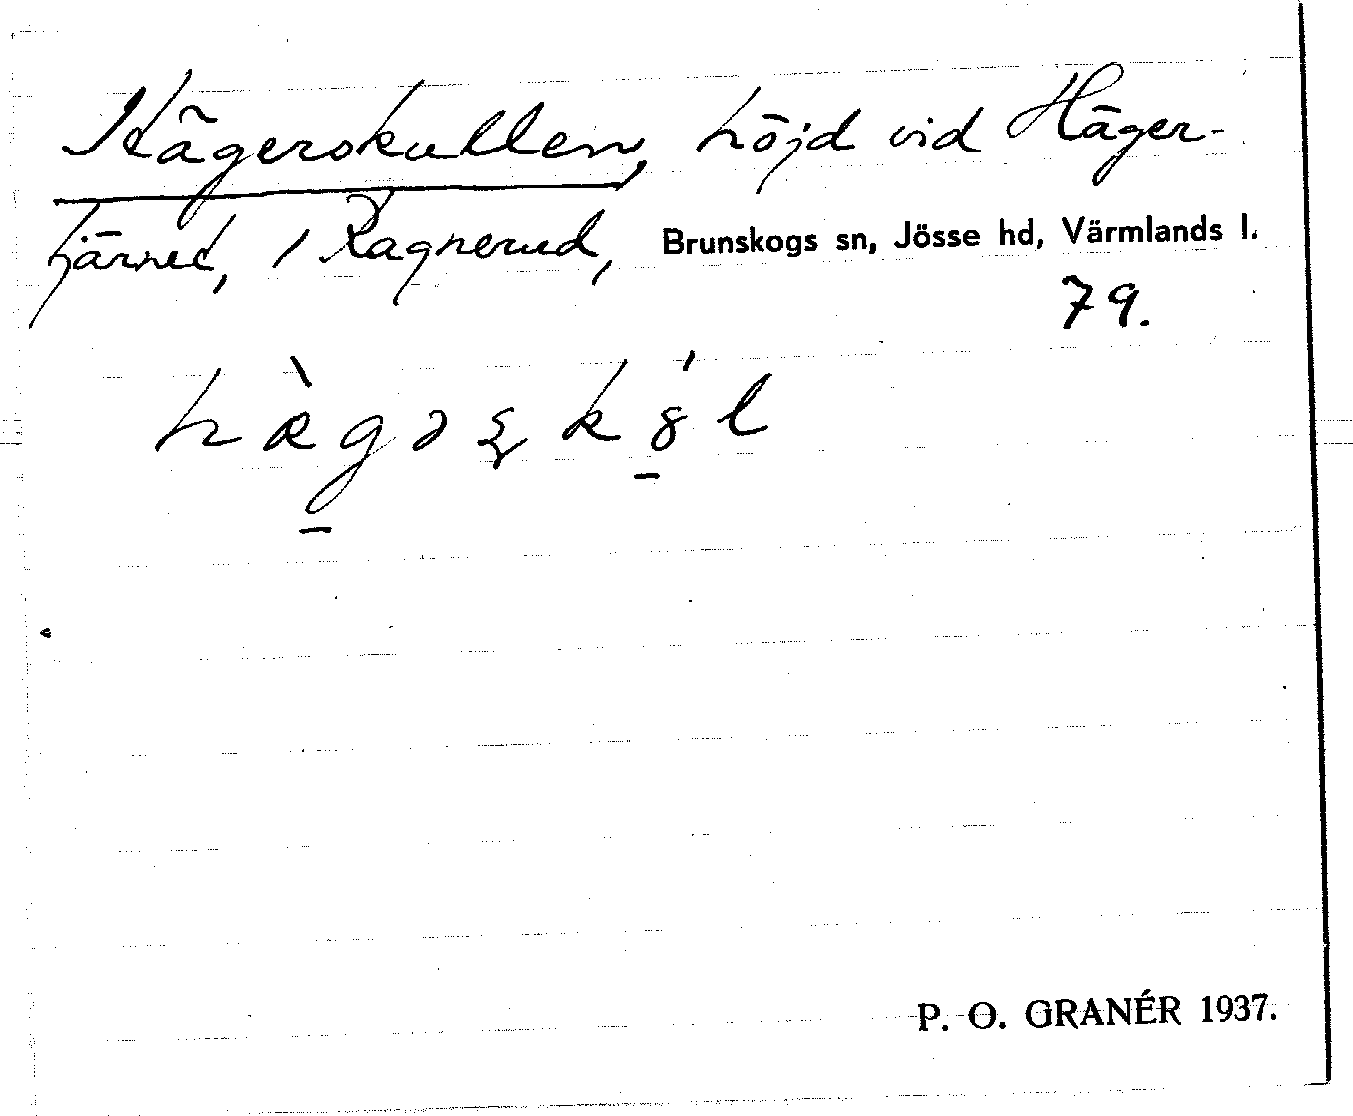 Hägerskullen, höjd vid Häger-
tjärnet, i Ragnerud, Brunskogs sn, Jösse hd, Värmlands l.
79.
P. O. GRANÉR 1937.